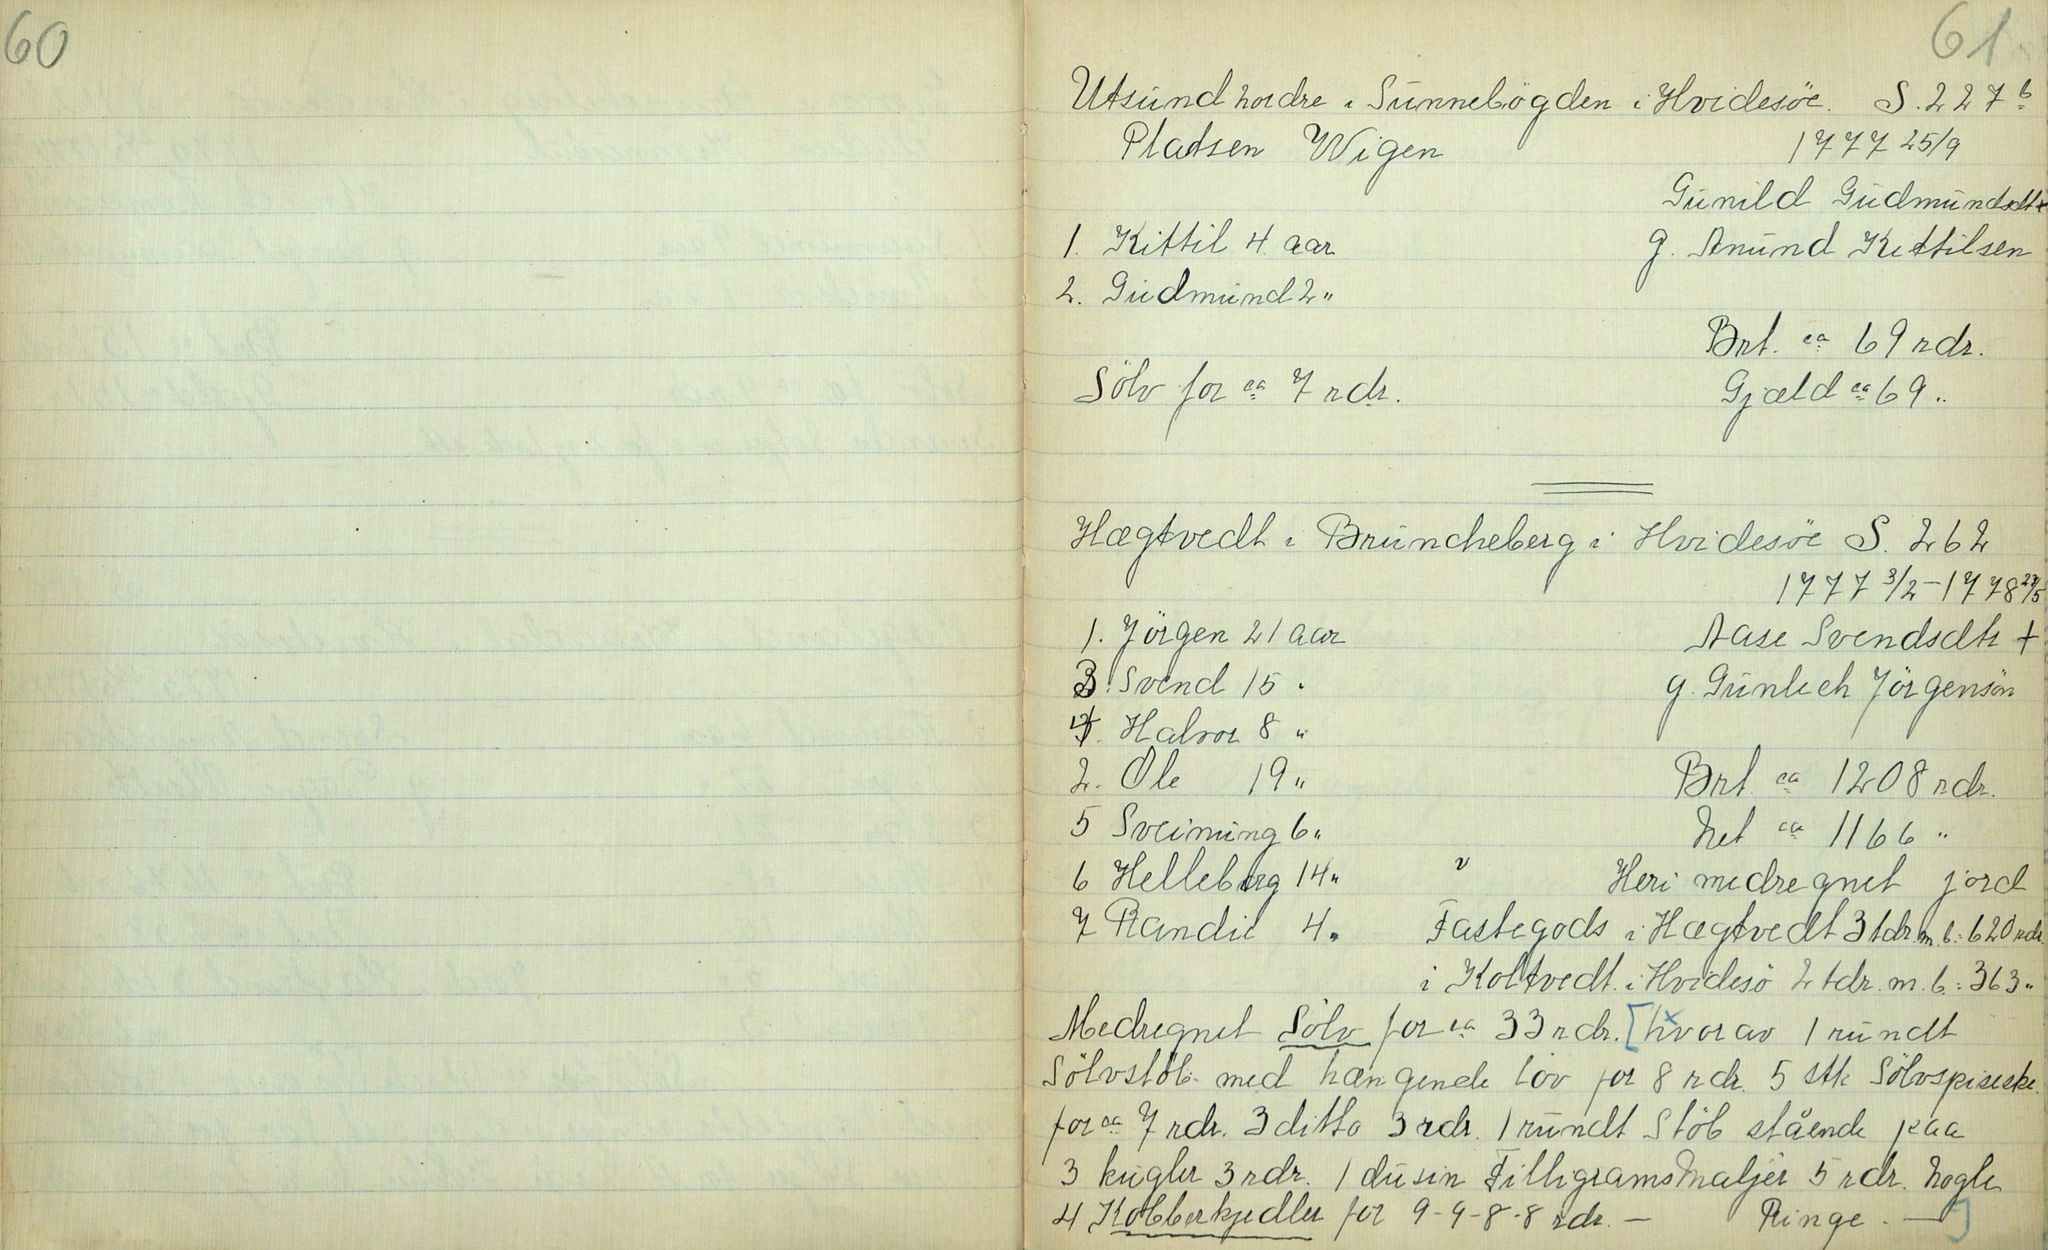 60
61.
Utsund nordre i Sunnebögden i Hvidesöe. S. 227 b
Pladsen Wigen 1777 25/9
Gunild Gudmundsdtr +
1. Kittil 4 aar g. Anund Kittilsen
2. Gudmund 2 "
Brt. ca 69 rdr.
Sölv for ca 7 rdr. Gjæld ca 69 "
Hægtvedt i Bruncheberg i Hvidesöe S. 262
1777 3/2 - 1778 23/5
1. Jörgen 21 aar Aase Svendsdtr +
3. Svend 15 " g. Gunlech Jörgensön
4. Halvor 8 "
2. Ole 19 " Brt. ca 1208 rdr.
5 Sveinung 6 " Net ca 1166 "
6 Helleberg 14 " Heri medregnet jord
7 Randie 4 " Fastegods i Hægtvedt 3 tdr. m. b.: 620 rdr.
i Koltvedt i Hvidesö 2 tdr. m. b.: 363 "
Medregnet Sölv for ca 33 rdr. [hvorav 1 rundt
Sölvstöb med hængende löv for 8 rdr. 5 stk Sölvspiseske
for ca 7 rdr. 3 ditto 3 rdr. 1 rundt Stöb stående paa
3 kugler 3 rdr. 1 dusin Filligrams Maljer 5 rdr. Nogle
4 Kobberkjedler for 9-9-8-8 rdr. — Ringe. —]